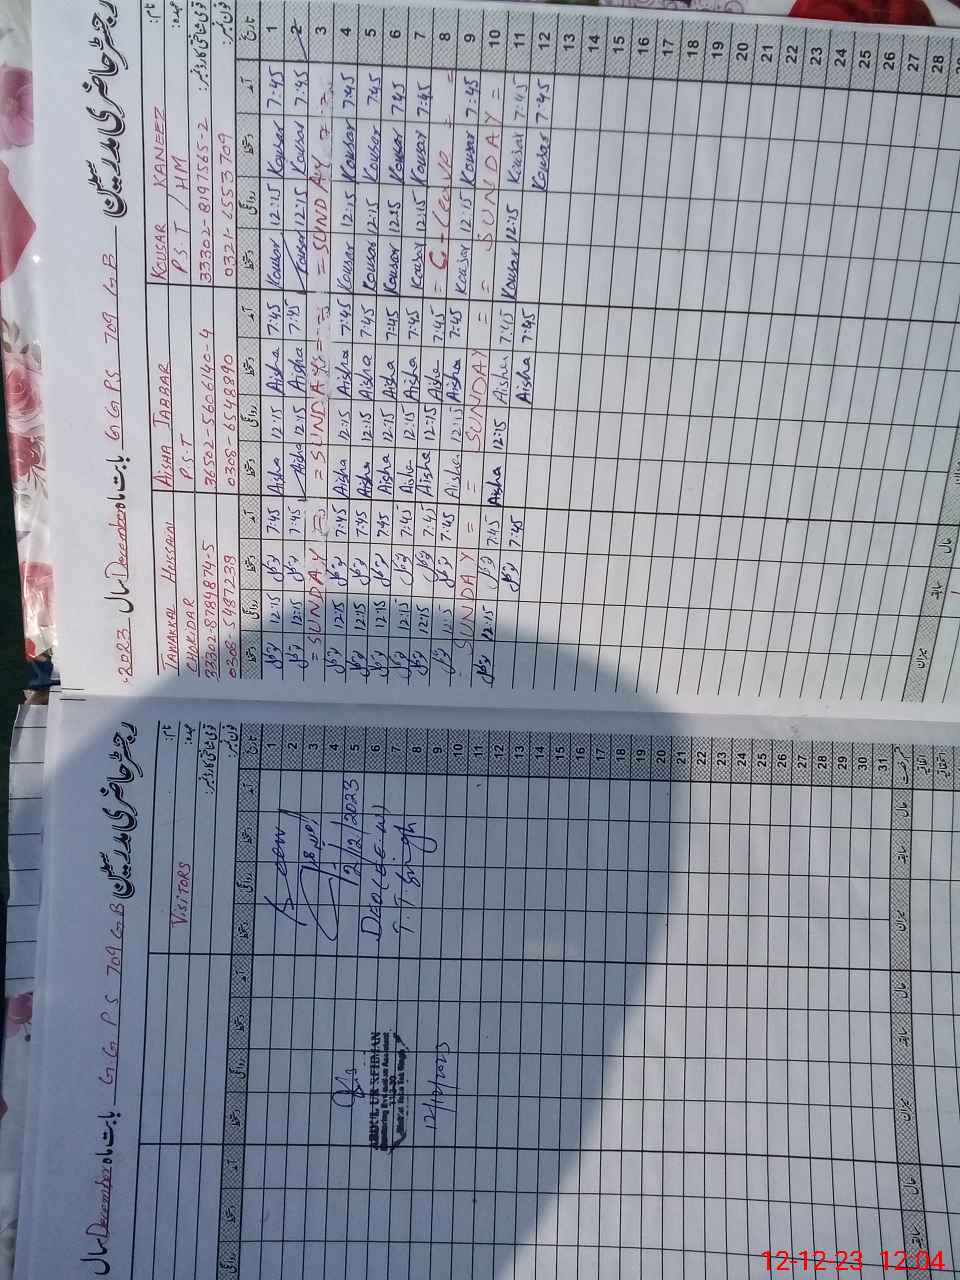 رجسٹر حاضری مدرسین G.G.P.S 709 G.B بابت ماہ December سال 2023
نام: TAWAKKAL HUSSAIN AISHA JABBAR KOUSAR KANEEZ
عہدہ: CHOKIDAR P.S.T P.S.T / HM
قومی شناختی کارڈ نمبر: 33302-8784874-5 36502-5606140-4 33302-8197565-2
فون نمبر: 0308-5487238 0308-6548890 0321-6553709
دستخط روانگی دستخط آمد دستخط روانگی دستخط آمد دستخط روانگی دستخط آمد تاریخ
توکل 12:15 توکل 7:45 Aisha 12:15 Aisha 7:45 Kousar 12:15 Kousar 7:45 1
توکل 12:15 توکل 7:45 Aisha 12:15 Aisha 7:45 Kousar 12:15 Kousar 7:45 2
= SUNDAY = = SUNDAY = = SUNDAY = 3
توکل 12:15 توکل 7:45 Aisha 12:15 Aisha 7:45 Kousar 12:15 Kousar 7:45 4
توکل 12:15 توکل 7:45 Aisha 12:15 Aisha 7:45 Kousar 12:15 Kousar 7:45 5
توکل 12:15 توکل 7:45 Aisha 12:15 Aisha 7:45 Kousar 12:15 Kousar 7:45 6
توکل 12:15 توکل 7:45 Aisha 12:15 Aisha 7:45 Kousar 12:15 Kousar 7:45 7
توکل 12:15 توکل 7:45 Aisha 12:15 Aisha 7:45 = C-Leave = 8
توکل 12:15 توکل 7:45 Aisha 12:15 Aisha 7:45 Kousar 12:15 Kousar 7:45 9
SUNDAY = = SUNDAY = = SUNDAY = 10
توکل 12:15 توکل 7:45 Aisha 12:15 Aisha 7:45 Kousar 12:15 Kousar 7:45 11
توکل 7:45 Aisha 7:45 Kousar 7:45 12
13
14
15
16
17
18
19
20
21
22
23
24
25
26
27
28
میزان سابقہ حال
رجسٹر حاضری مدرسین G.G.P.S 709 G.B بابت ماہ December سال
نام:
عہدہ: VISITORS
قومی شناختی کارڈ نمبر:
فون نمبر:
روانگی دستخط آمد دستخط روانگی دستخط آمد دستخط روانگی دستخط آمد تاریخ
1
2
3
12/12/2023 4
5
DEO (E.E-W) 6
ABDUL UR REHMAN T.T.Singh 7
Monitoring Evaluation Assistant 8
12/12/2023 9
10
11
12
13
14
15
16
17
18
19
20
21
22
23
24
25
26
27
28
29
30
31
میزان سابقہ حال میزان سابقہ حال
12-12-23 12:04